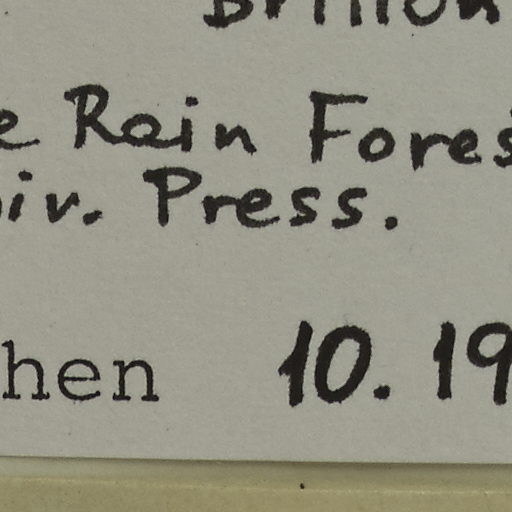 e Rain Fores
iv. Press.
hen 10. 19